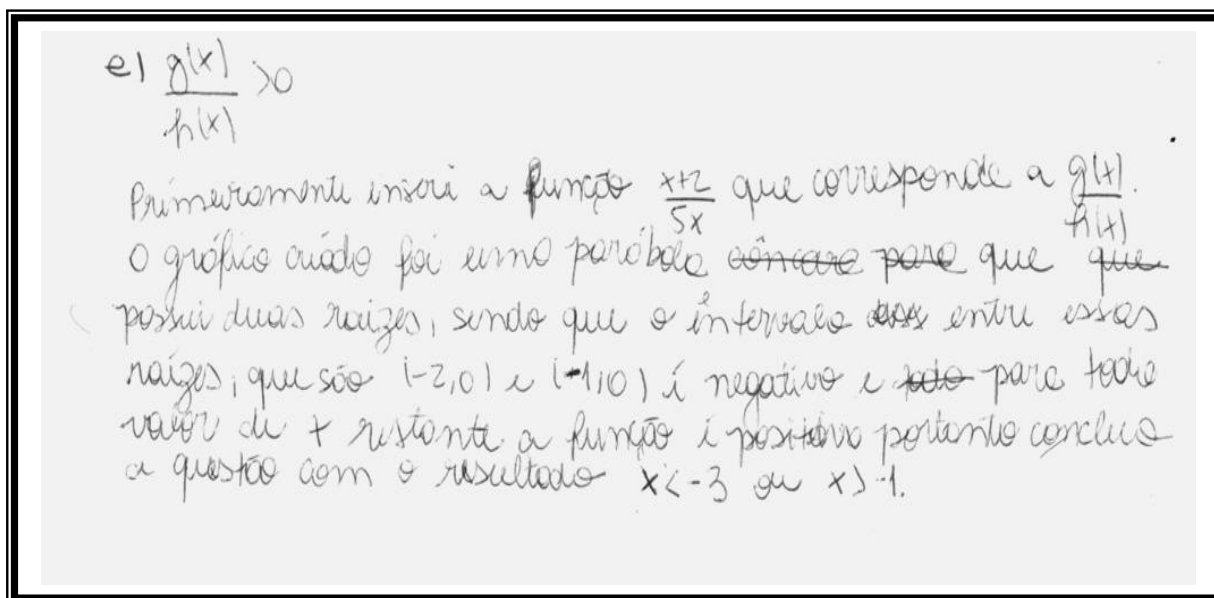 e) g(x)/h(x) >0
Primeiramente inseri a função x+2/5x que corresponde a g(x)/h(x).
O gráfico criado foi uma parábola côncava para que que
possui duas raízes, sendo que o intervalo entre essas
raízes, que são (-2,0) e (-1,0) é negativo e todo para todo
valor de x restante a função é positivo portanto concluo
a questão com o resultado x<-3 ou x>-1.